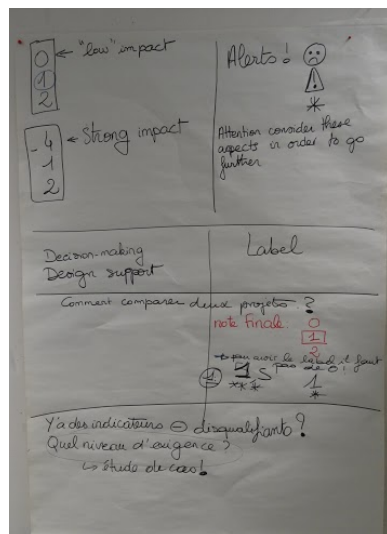 0 ← "low" impact
1
2
-4 ← Strong impact
1
2
Alerts! ☹
⚠
*
Attention consider these
aspects in order to go
further
Decision-making
Design support
Label
Comment comparer deux projets ?
note finale: 0
1
2
→ pour avoir le label il faut
pas de 0!
1 1 S 1
*** *
Y'a des indicateurs ⊖ disqualifiants ?
Quel niveau d'exigence ?
↳ étude de cas!